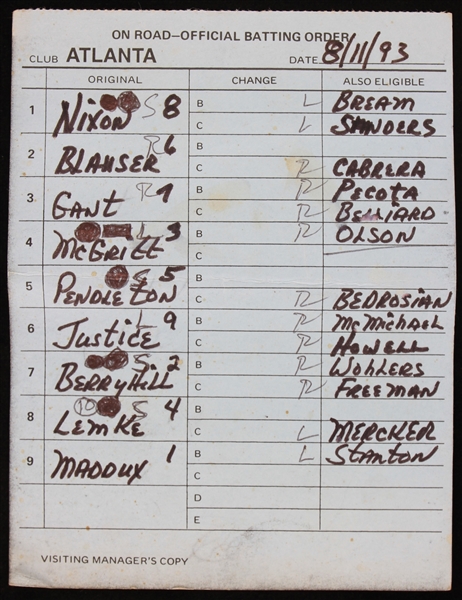 ON ROAD—OFFICIAL BATTING ORDER
CLUB ATLANTA DATE 8/11/93
ORIGINAL CHANGE ALSO ELIGIBLE
1 Nixon S 8 B L BREAM
C L SANDERS
2 BLAUSER R 6 B
C R CABRERA
3 GANT R 7 B R PECOTA
C R BELLIARD
4 McGRIFF L 3 B R OLSON
C
5 PENDLETON S 5 B
C R BEDROSIAN
6 Justice L 9 B R McMichael
C R HOWELL
7 BERRYHILL S 2 B R WOHLERS
C R FREEMAN
8 LEMKE S 4 B
C L MERCKER
9 MADDUX 1 B L STANTON
C
D
E
VISITING MANAGER'S COPY